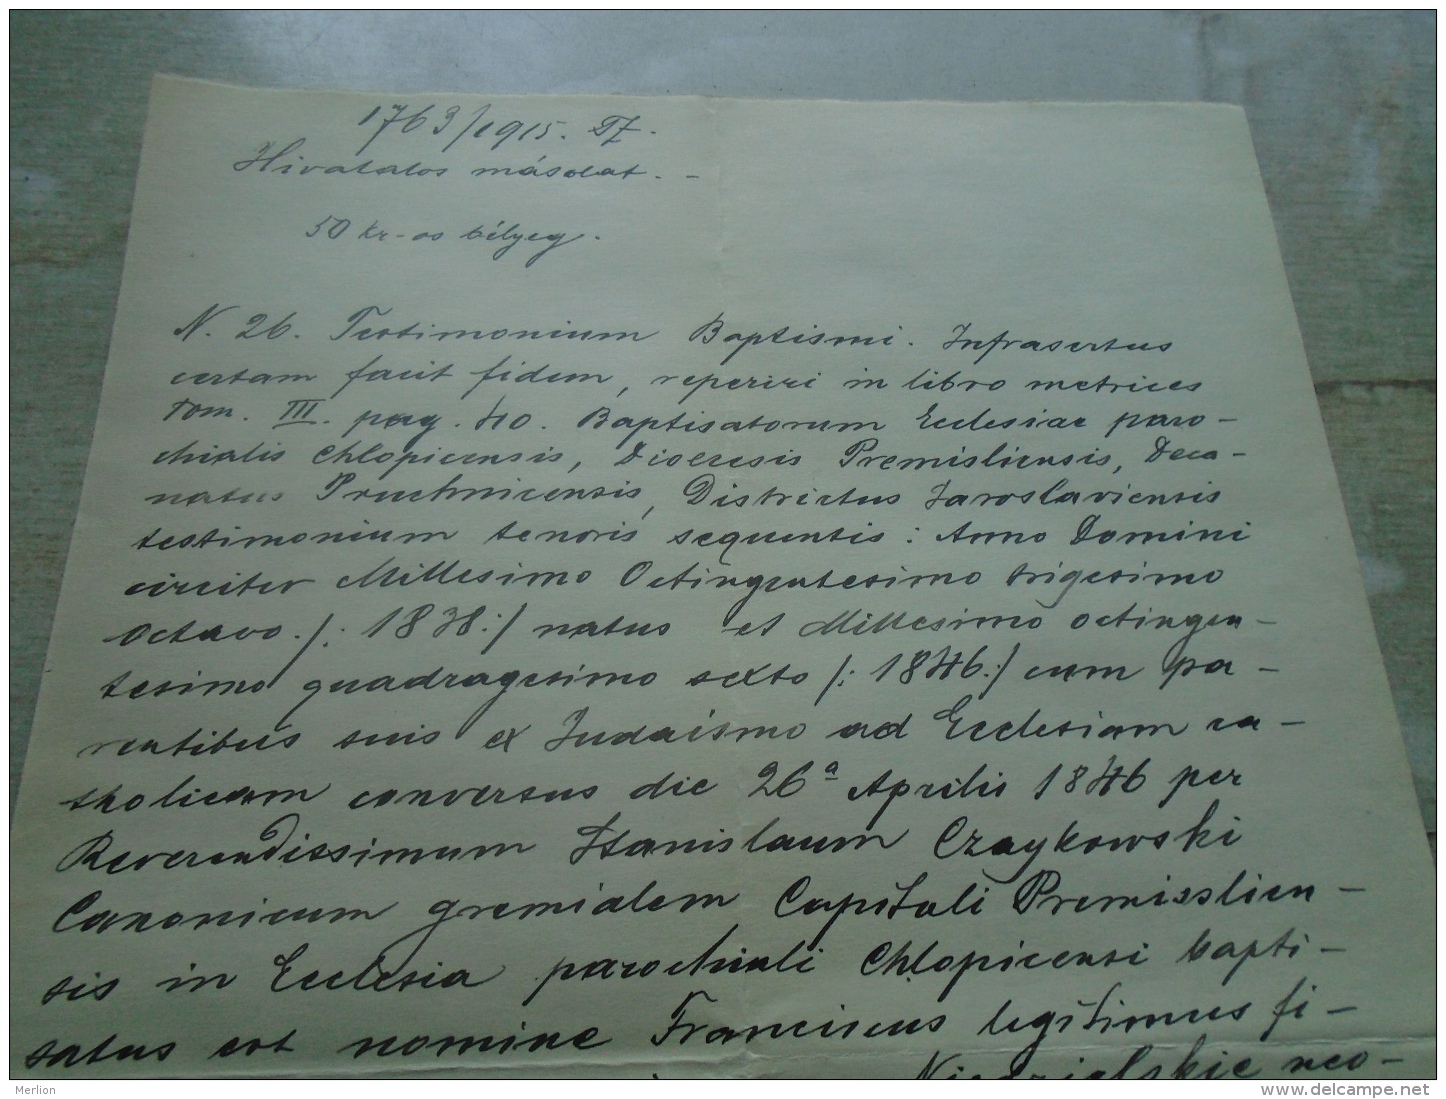 1763/1915.
Hivatalos másolat. -
50 kr-os bélyeg.
N. 26. Testimonium Baptismi. Infrasertus
certam facit fidem, reperiri in libro metrices
Tom. III. pag. 40. Baptisatorum Ecclesiae paro-
chialis Chlopicensis, Dioecesis Premisliensis, Deca-
natus Pruchnicensis, Districtus Jaroslaviensis
testimonium tenoris sequentis: Anno Domini
circiter Millesimo Octingentesimo trigesimo
octavo /: 1838:/ natus et Millesimo octingen-
tesimo quadragesimo sexto /: 1846:/ cum pa-
rentibus suis ex Judaismo ad Ecclesiam ca-
tholicam conversus die 26ª Aprilis 1846 per
Reverendissimum Stanislaum Czaykowski
Canonicum gremialem Capituli Premisslien-
sis in Ecclesia parochiali Chlopicensi bapti-
satus est nomine Franciscus legitimus fi-
Niedzielskie neo-
Merlion
www.delcampe.net